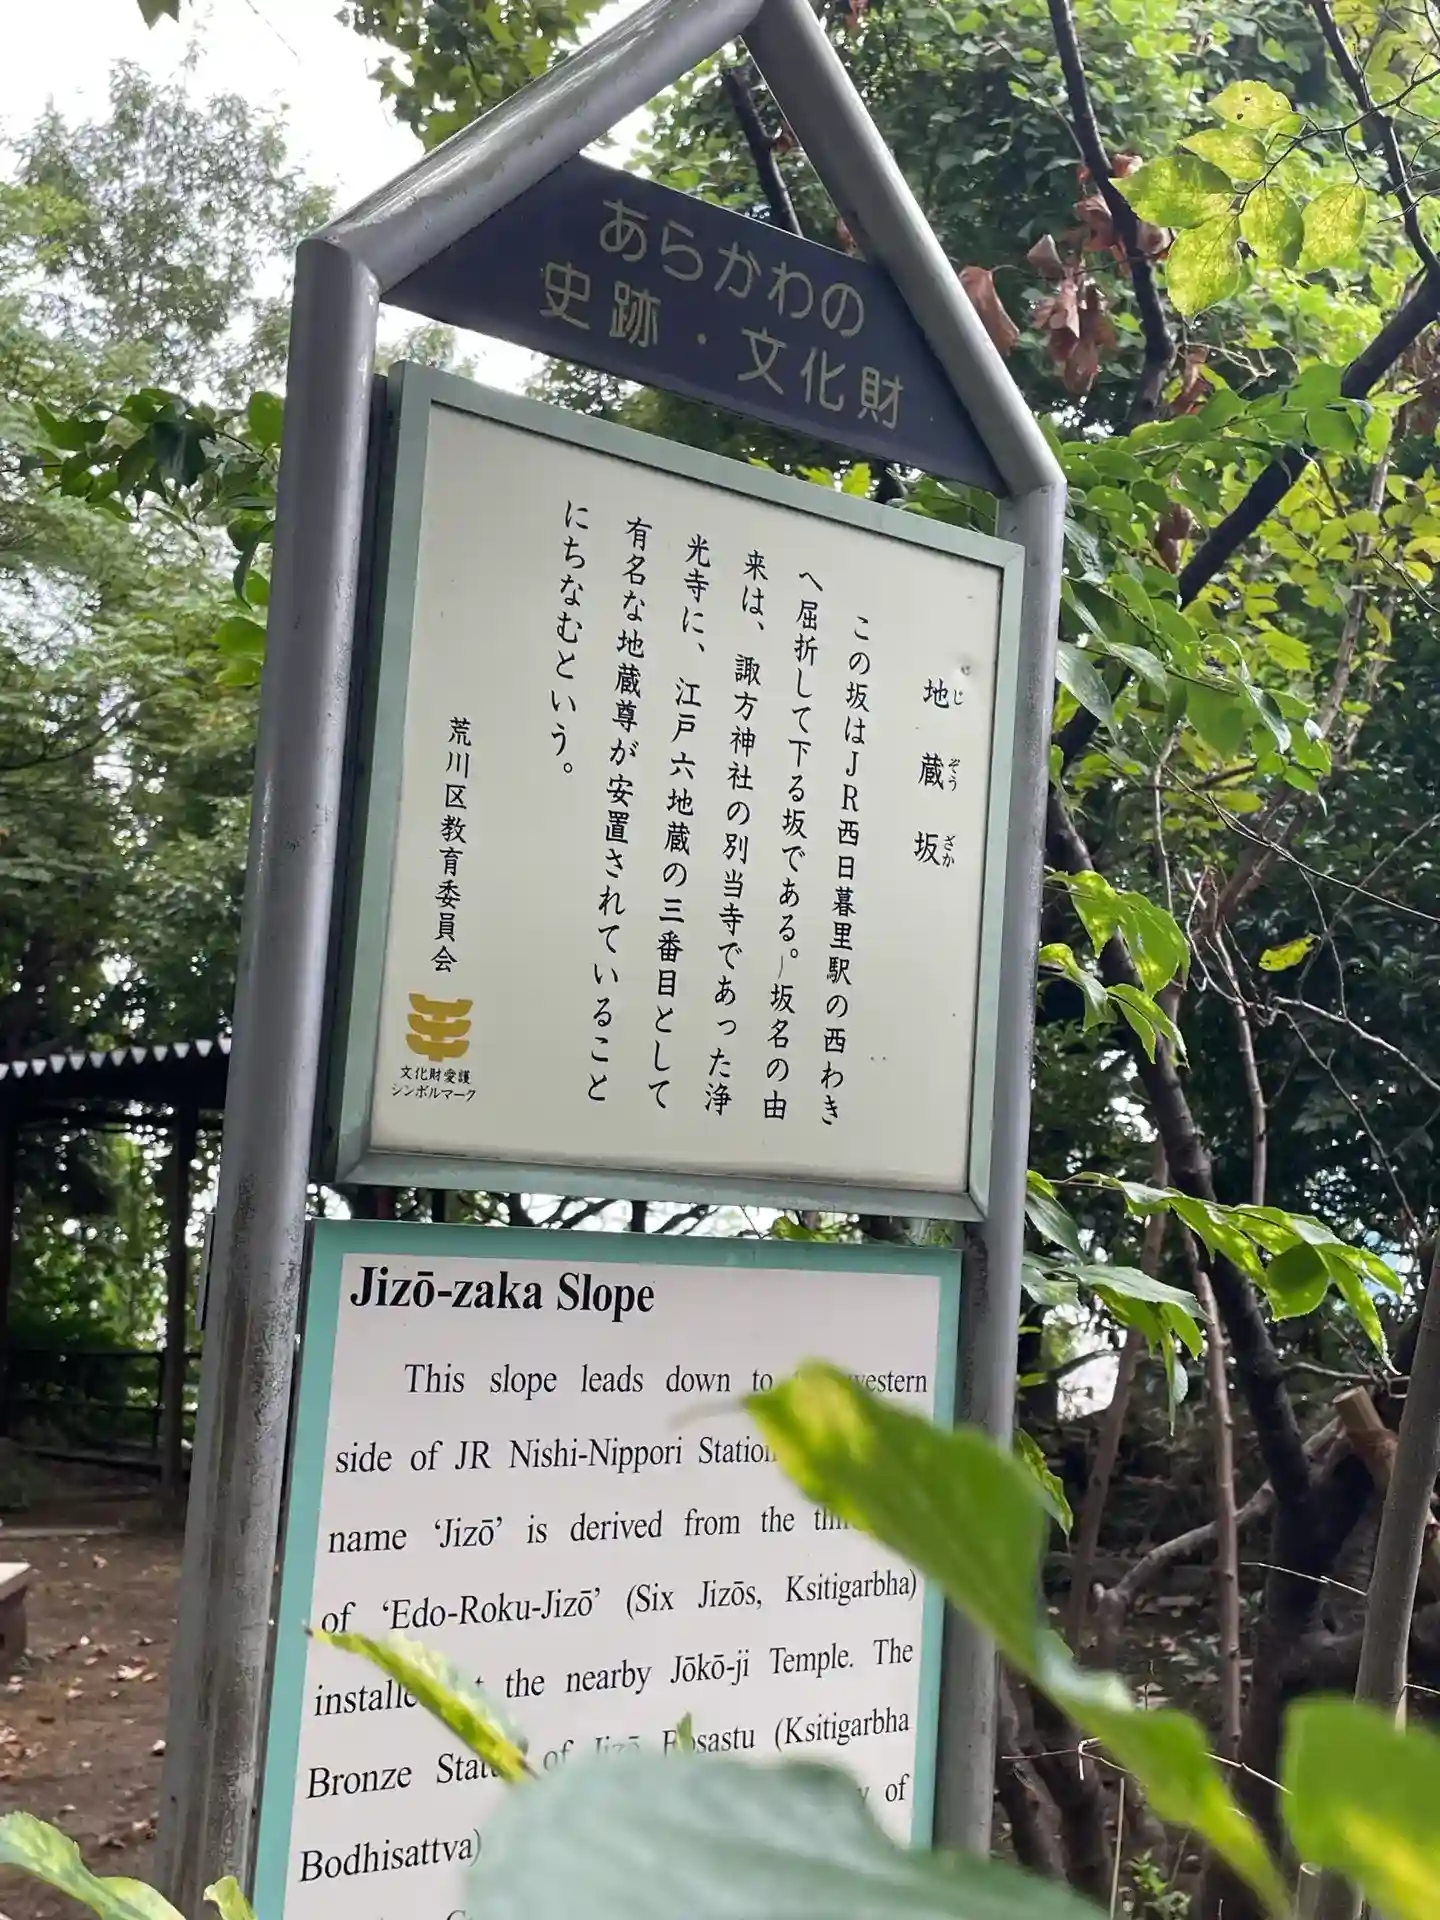 あらかわの
史跡・文化財
地蔵坂
じぞうざか
この坂はJR西日暮里駅の西わき
へ屈折して下る坂である。坂名の由
来は、諏方神社の別当寺であった浄
光寺に、江戸六地蔵の三番目として
有名な地蔵尊が安置されていること
にちなむという。
荒川区教育委員会
文化財愛護
シンボルマーク
Jizō-zaka Slope
This slope leads down to western
side of JR Nishi-Nippori Station
name ‘Jizō’ is derived from the
of ‘Edo-Roku-Jizō’ (Six Jizōs, Ksitigarbha)
the nearby Jōkō-ji Temple. The
Bronze of Jizō (Ksitigarbha
of
Bodhisattva)